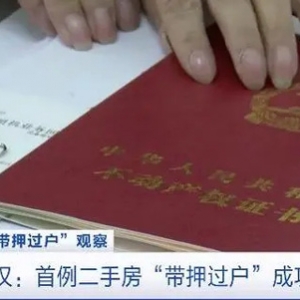 中华人民共和
不动产权证书
带押过户”观察
汉：首例二手房“带押过户”成功